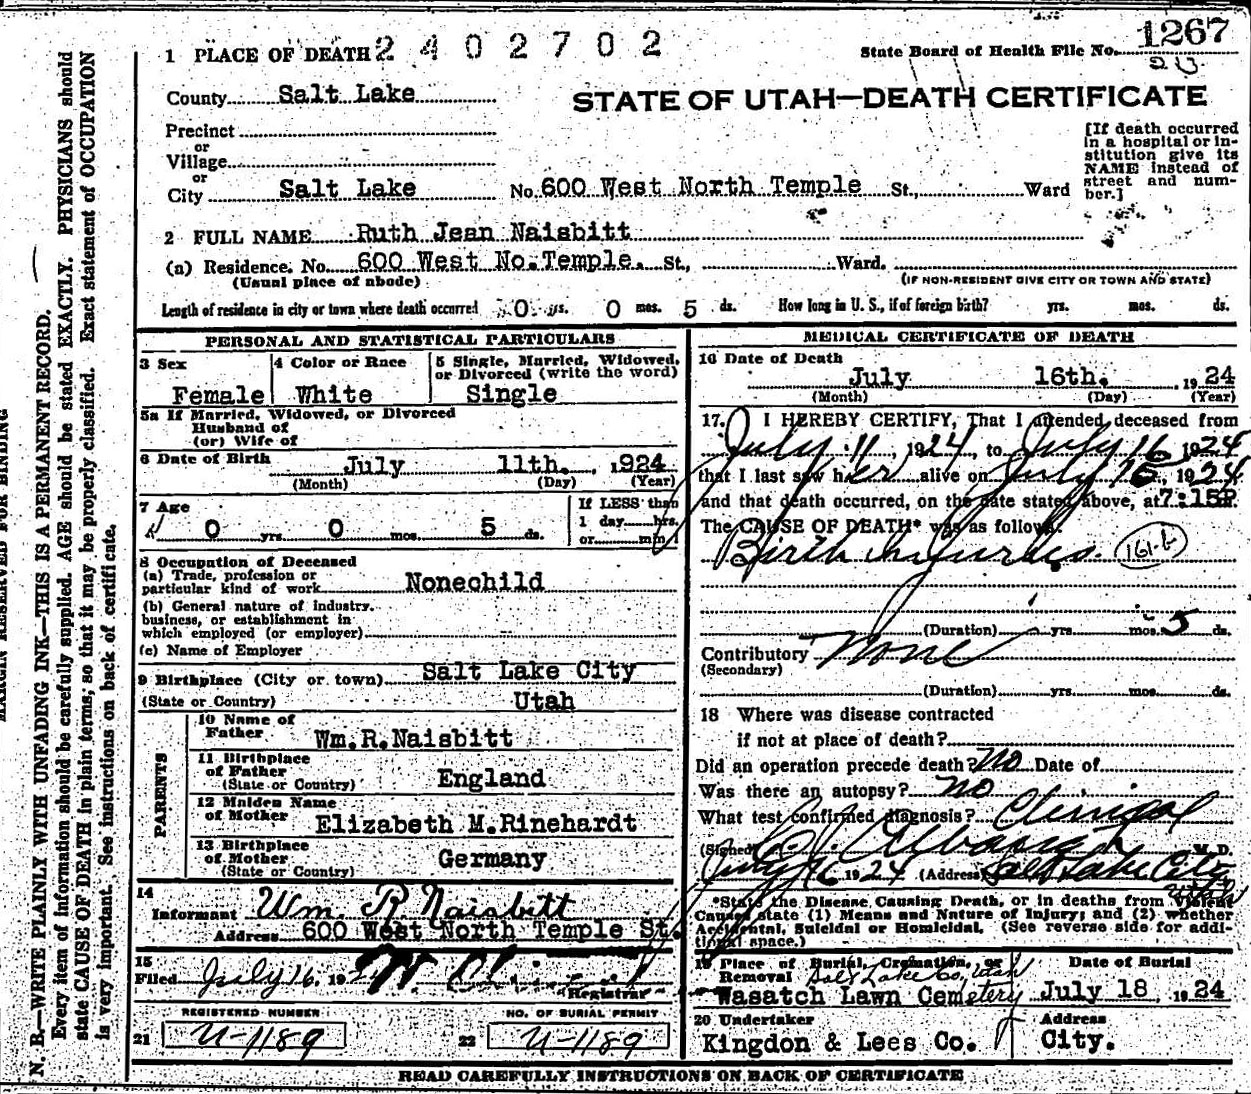 1267
State Board of Health File No.
20
1 PLACE OF DEATH 2402702
STATE OF UTAH—DEATH CERTIFICATE
County Salt Lake
Precinct
or
Village
or
City Salt Lake No. 600 West North Temple St., Ward
[If death occurred
in a hospital or in-
stitution give its
NAME instead of
street and num-
ber.]
2 FULL NAME Ruth Jean Naisbitt
(a) Residence. No. 600 West No. Temple. St., Ward.
(Usual place of abode) (IF NON-RESIDENT GIVE CITY OR TOWN AND STATE)
Length of residence in city or town where death occurred 0 yrs. 0 mos. 5 ds. How long in U. S., if of foreign birth? yrs. mos. ds.
PERSONAL AND STATISTICAL PARTICULARS
3 Sex 4 Color or Race 5 Single, Married, Widowed,
or Divorced (write the word)
Female White Single
5a If Married, Widowed, or Divorced
Husband of
(or) Wife of
6 Date of Birth July 11th. , 1924
(Month) (Day) (Year)
7 Age If LESS than
1 day hrs.
0 yrs 0 mos. 5 ds. or min
8 Occupation of Deceased
(a) Trade, profession or
particular kind of work Nonechild
(b) General nature of industry.
business, or establishment in
which employed (or employer)
(c) Name of Employer
9 Birthplace (City or town) Salt Lake City
(State or Country) Utah
PARENTS
10 Name of
Father Wm.R.Naisbitt
11 Birthplace
of Father England
(State or Country)
12 Maiden Name
of Mother Elizabeth M.Rinehardt
13 Birthplace
of Mother Germany
(State or Country)
14
Informant Wm. R Naisbitt
Address 600 West North Temple St.
15
Filed July 16, 1924
Registrar
REGISTERED NUMBER NO. OF BURIAL PERMIT
21 U-1189 22 U-1189
MEDICAL CERTIFICATE OF DEATH
16 Date of Death
July 16th. , 1924
(Month) (Day) (Year)
17. I HEREBY CERTIFY, That I attended deceased from
July 11, 1924, to July 16 1924
that I last saw her alive on July 16, 1924
and that death occurred, on the date stated above, at 7:15P m.
The CAUSE OF DEATH* was as follows:
Birth Injuries. 161-b
(Duration) yrs mos. 5 ds.
Contributory None
(Secondary)
(Duration) yrs mos ds.
18 Where was disease contracted
if not at place of death?
Did an operation precede death? No Date of
Was there an autopsy? no
What test confirmed diagnosis? Clinical
(Signed) M.D.
July 16 1924 (Address) Salt Lake City
Utah
*State the Disease Causing Death, or in deaths from Violent
Causes state (1) Means and Nature of Injury; and (2) whether
Accidental, Suicidal or Homicidal. (See reverse side for addi-
tional space.)
19 Place of Burial, Cremation, or Date of Burial
Removal Salt Lake Co, Utah
Wasatch Lawn Cemetery July 18 , 1924
20 Undertaker Address
Kingdon & Lees Co. City.
READ CAREFULLY INSTRUCTIONS ON BACK OF CERTIFICATE
MARGIN RESERVED FOR BINDING
N. B.—WRITE PLAINLY WITH UNFADING INK—THIS IS A PERMANENT RECORD.
Every item of information should be carefully supplied. AGE should be stated EXACTLY. PHYSICIANS should
state CAUSE OF DEATH in plain terms; so that it may be properly classified. Exact statement of OCCUPATION
is very important. See instructions on back of certificate.